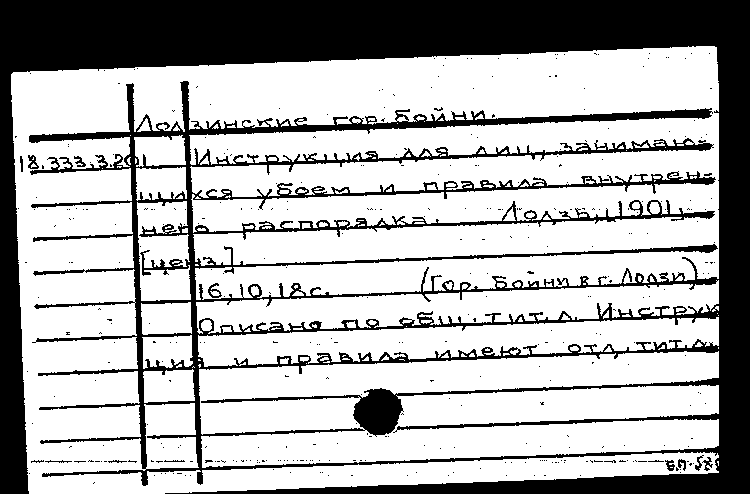 Лодзинские гор. бойни.
18.333.3.201. Инструкция для лиц, занимаю-
щихся убоем и правила внутрен-
него распорядка. Лодзь, 1901,
[ценз.].
16, 10, 18 с. (Гор. Бойни в г. Лодзи)
Описано по общ. тит. л. Инструк
ция и правила имеют отд. тит. л.